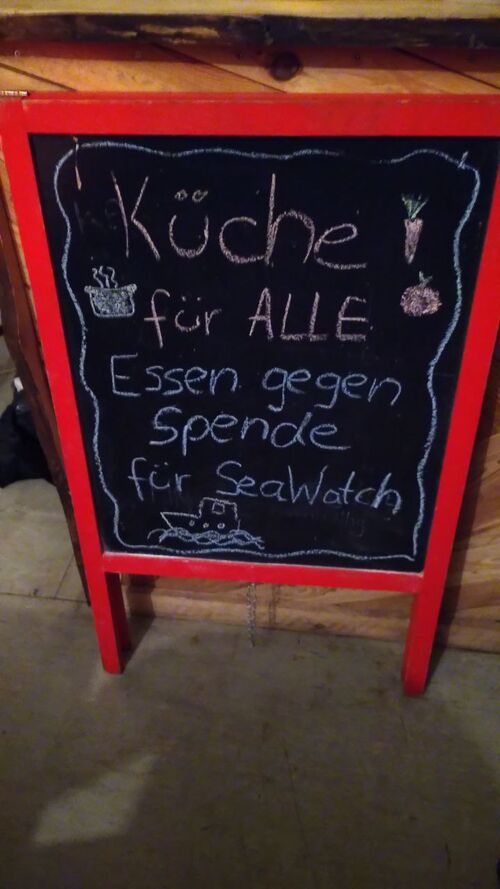 Küche
für ALLE
Essen gegen
Spende
für SeaWatch